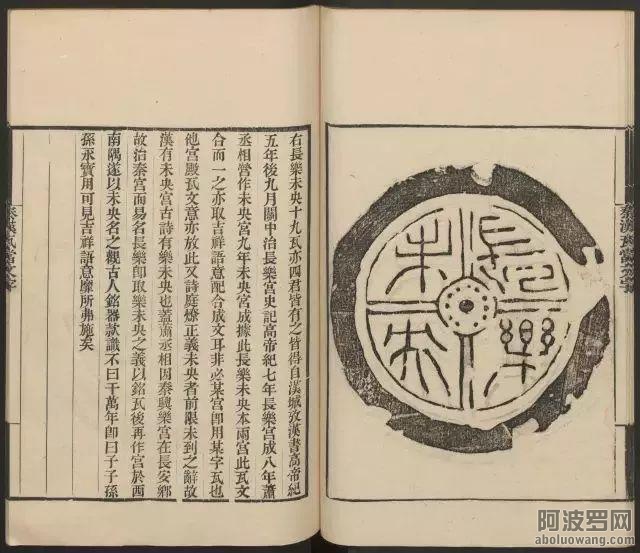 長樂未央
右長樂未央十九瓦亦四君皆有之皆得自漢城攷漢書高帝紀
五年後九月關中治長樂宮史記高帝紀七年長樂宮成八年蕭
丞相營作未央宮九年未央宮成據此長樂未央本兩宮此瓦文
合而一之亦取吉祥語意配合成文耳非必某宮卽用某字瓦也
他宮殿瓦文意亦放此又詩庭燎正義未央者前限未到之辭故
漢有未央宮古詩有樂未央也蓋蕭丞相因秦興樂宮在長安鄉
故治秦宮而易名長樂卽取樂未央之義以銘瓦後再作宮於西
南隅遂以未央名之觀古人銘器款識不曰千萬年卽曰子子孫
孫永寶用可見吉祥語意靡所弗施矣
秦漢瓦當文字
阿波罗网
aboluowang.com